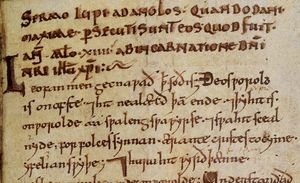 SERMO LUPI AD ANGLOS. QUANDO DANI
MAXIME PSECUTI SUNT EOS QUOD FUIT
AN̄. M̄LO. XIIII. AB INCARNATIONE DN̄I
NR̄I IHU XPI.
Leofan men gecnawað ꝥ soð is. Ðeos worold
is on ofste ⁊ hit nealæcð þa ende. ⁊ þy hit is
on worolde aa swa leng swa wyrse. ⁊ swa hit sceal nyde
for folces synnan ær antecristes tocyme
yfelian swyþe. ⁊ huru hit wyrð þænne
worolde. Understandað